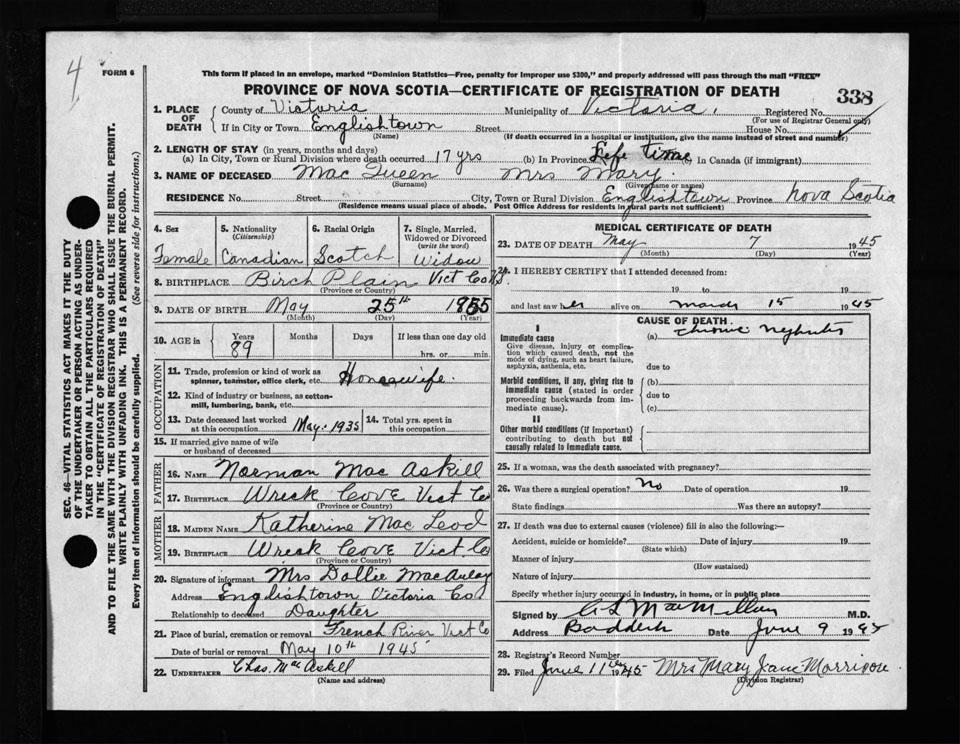 4
FORM 6
This form if placed in an envelope, marked "Dominion Statistics—Free, penalty for improper use $300," and properly addressed will pass through the mail "FREE"
PROVINCE OF NOVA SCOTIA—CERTIFICATE OF REGISTRATION OF DEATH
338
1. PLACE OF DEATH
County of Victoria Municipality of Victoria. Registered No.
(For use of Registrar General only)
If in City or Town Englishtown Street House No.
(Name) (If death occurred in a hospital or institution, give the name instead of street and number)
2. LENGTH OF STAY (in years, months and days)
(a) In City, Town or Rural Division where death occurred 17 yrs (b) In Province Life time (c) In Canada (if immigrant)
3. NAME OF DECEASED Mac Queen Mrs Mary.
(Surname) (Given name or names)
RESIDENCE No. Street City, Town or Rural Division Englishtown Province Nova Scotia
(Residence means usual place of abode. Post Office Address for residents in rural parts not sufficient)
4. Sex
Female
5. Nationality
(Citizenship)
Canadian
6. Racial Origin
Scotch
7. Single, Married, Widowed or Divorced
(write the word)
Widow
8. BIRTHPLACE Birch Plain Vict Co N.S.
(Province or Country)
9. DATE OF BIRTH May 25th 1855
(Month) (Day) (Year)
10. AGE in
Years Months Days If less than one day old
89 hrs. or min.
OCCUPATION
11. Trade, profession or kind of work as spinner, teamster, office clerk, etc. Housewife.
12. Kind of industry or business, as cotton-mill, lumbering, bank, etc.
13. Date deceased last worked at this occupation May. 1935
14. Total yrs. spent in this occupation
15. If married give name of wife or husband of deceased
FATHER
16. NAME Norman Mac Askill
17. BIRTHPLACE Wreck Cove Vict Co
(Province or Country)
MOTHER
18. MAIDEN NAME Katherine Mac Leod
19. BIRTHPLACE Wreck Cove Vict. Co
(Province or Country)
20. Signature of informant Mrs Dollie MacAulay
Address Englishtown Victoria Co
Relationship to deceased Daughter
21. Place of burial, cremation or removal French River Vict Co
Date of burial or removal May 10th 1945
22. UNDERTAKER Chas. MacAskill
(Name and address)
MEDICAL CERTIFICATE OF DEATH
23. DATE OF DEATH May 7 1945
(Month) (Day) (Year)
24. I HEREBY CERTIFY that I attended deceased from:
19 to 19
and last saw her alive on March 15 1945
CAUSE OF DEATH
I
Immediate cause
Give disease, injury or complication which caused death, not the mode of dying, such as heart failure, asphyxia, asthenia, etc.
(a) Chronic Nephritis
due to
Morbid conditions, if any, giving rise to immediate cause (stated in order proceeding backwards from immediate cause).
(b)
due to
(c)
II
Other morbid conditions (if important) contributing to death but not causally related to immediate cause.
25. If a woman, was the death associated with pregnancy?
26. Was there a surgical operation? No Date of operation 19
State findings Was there an autopsy?
27. If death was due to external causes (violence) fill in also the following:—
Accident, suicide or homicide? Date of injury 19
(State which)
Manner of injury
(How sustained)
Nature of injury
Specify whether injury occurred in industry, in home, or in public place
Signed by C L MacMillan M.D.
Address Baddeck Date June 9 1945
28. Registrar's Record Number
29. Filed June 11 1945 Mrs Mary Jane Morrison
(Division Registrar)
SEC. 46—VITAL STATISTICS ACT MAKES IT THE DUTY
OF THE UNDERTAKER OR PERSON ACTING AS UNDER-
TAKER TO OBTAIN ALL THE PARTICULARS REQUIRED
IN THE "CERTIFICATE OF REGISTRATION OF DEATH"
AND TO FILE THE SAME WITH THE DIVISION REGISTRAR WHO SHALL ISSUE THE BURIAL PERMIT.
WRITE PLAINLY WITH UNFADING INK. THIS IS A PERMANENT RECORD.
Every item of information should be carefully supplied. (See reverse side for instructions.)